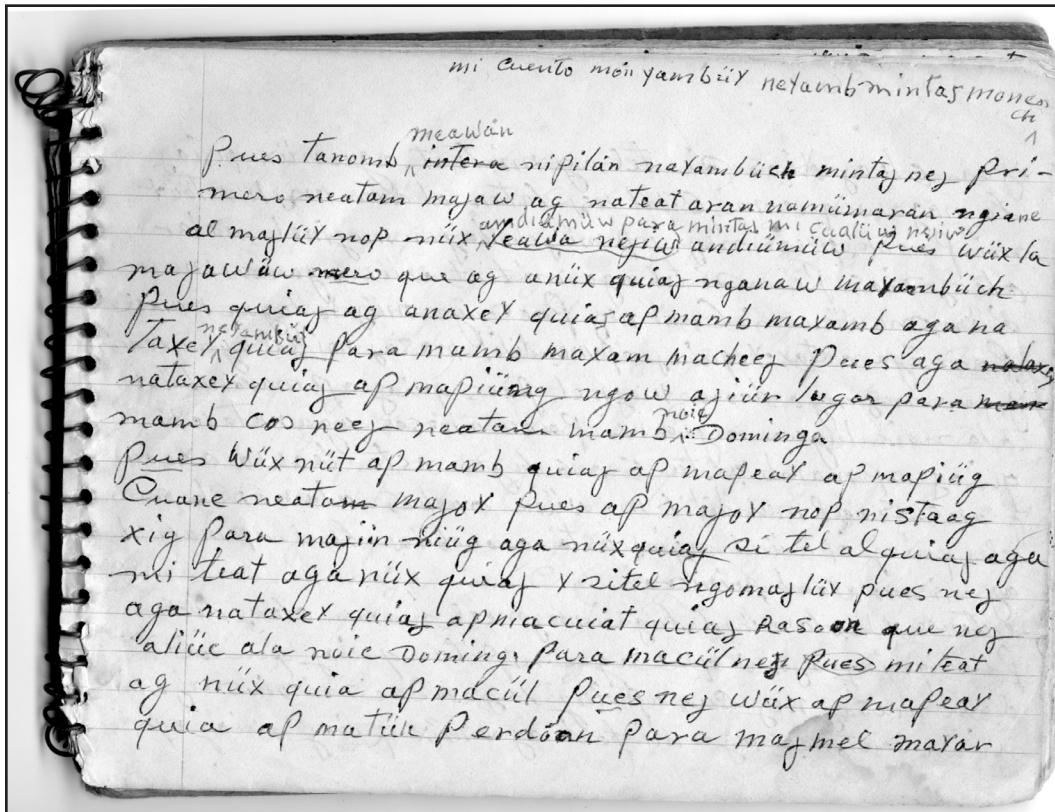 mi cuento monyambüy neyamb mintaj moneon
ch
meawan
Pues tanomb intera nipilán nayambüch mintaj nej Pri-
mero neatam majaw ag nateat aran namümaran ngiane
andiümüw para mintaj mi cualüw nejiw
al majlüy nop nüx, yeawa nejiw andiümüw Pues wüx la
majawüw mero que ag anüx quiaj nganaw mayambüch
Pues quiaj ag anaxey quiaj ap mamb mayamb aga na
nayambüy
Taxey quiaj Para mamb maxam macheej Pues aga natax
nataxey quiaj ap mapiüng ngow ajiür lugar para
noic
mamb cos neej neatam mamb Dominga
Pues Wüx nüt ap mamb quiaj ap mapeay ap mapiüg
Cuane neatam majoy Pues ap majoy nop nistaag
xig Para majiin niüg aga nüx quiaj si tel al quiaj aga
mi teat aga nüx quiaj y sitel ngomajlüy pues nej
aga nataxey quiaj apmacuiat quiaj Rason que nej
aliüc ala noic Doming. Para macül nej Pues miteat
ag nüx quia ap macül Pues nej wüx ap mapeay
quia ap matün Perdóon Para majmel mayar